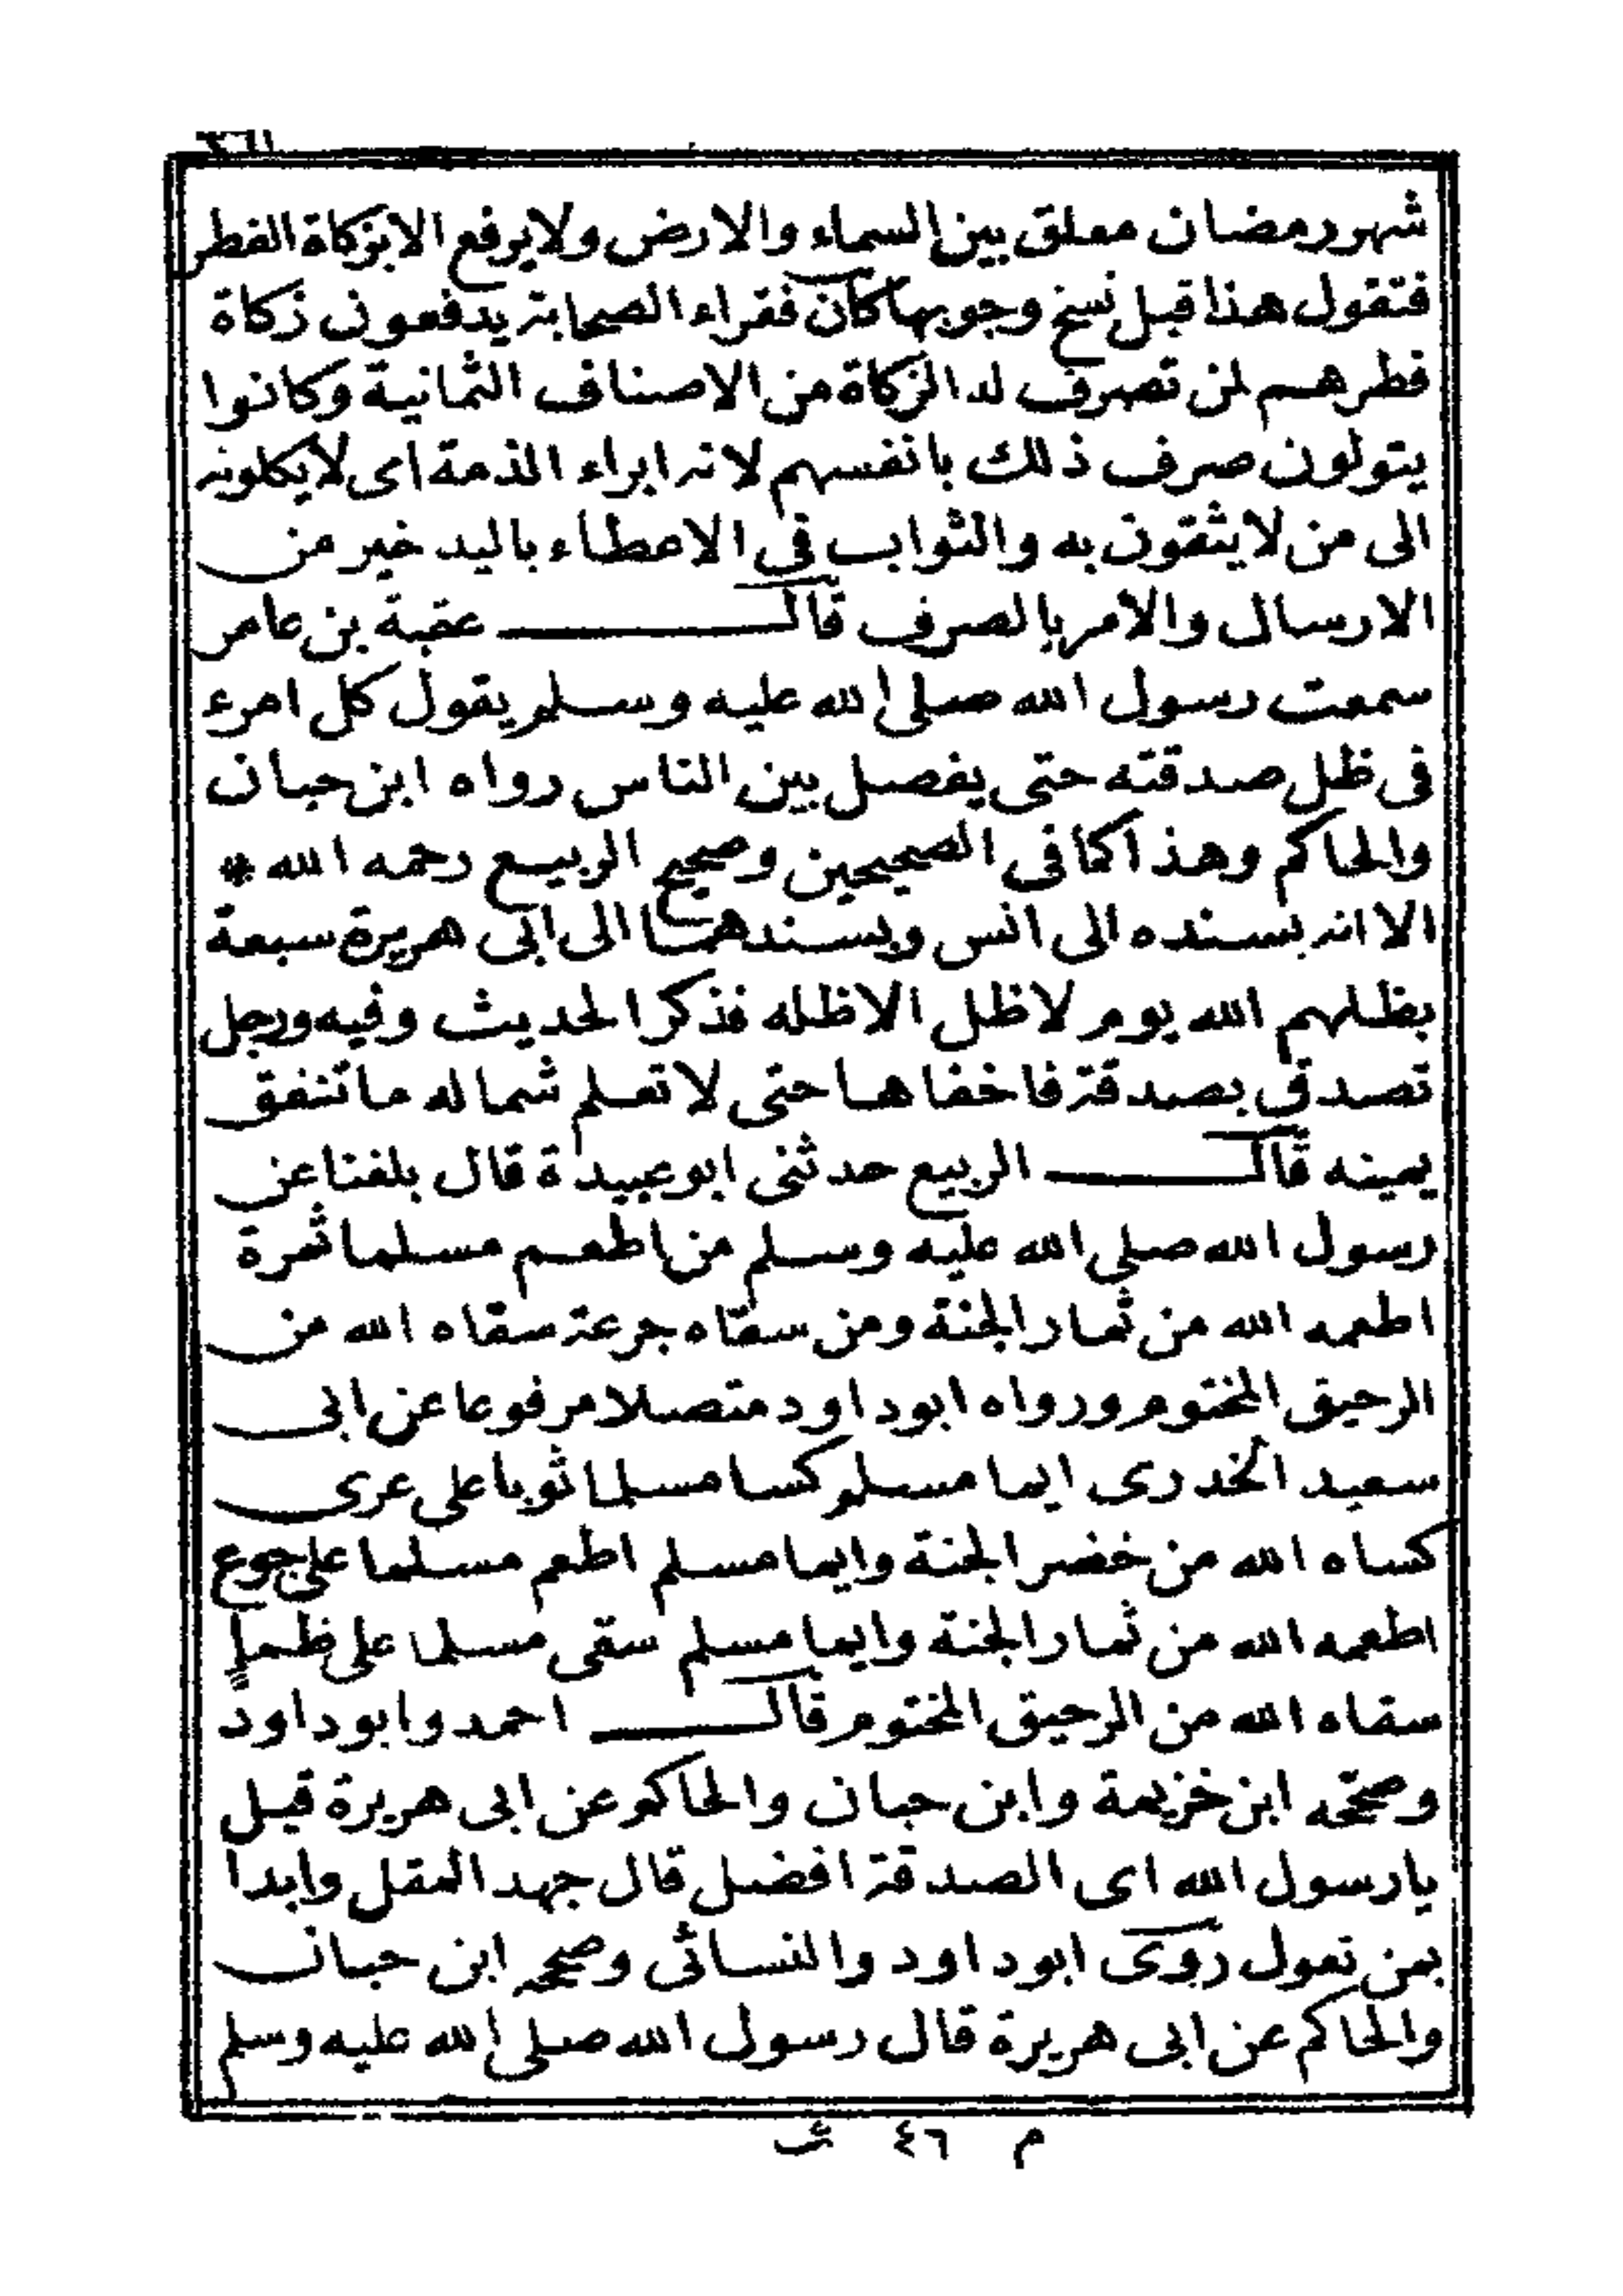 شهر رمضان معلق بين السماء والارض ولا يرفع الا بزكاة الفطر
فتقول هذا قبل نسخ وجوبها كان فقراء الصحابة يدفعون زكاة
فطرهم لمن تصرف له الزكاة من الاصناف الثمانية وكانوا
يتولون صرف ذلك بانفسهم لانه ابراء الذمة اى لا يكلونه
الى من لا يثقون به والثواب فى الاعطاء باليد خير من
الارسال والامر بالصرف قال عقبة بن عامر
سمعت رسول الله صلى الله عليه وسلم يقول كل امرء
فى ظل صدقته حتى يفصل بين الناس رواه ابن حبان
والحاكم وهذا كما فى الصحيحين وصحيح الربيع رحمه الله *
الا انه بسنده الى انس وبسندهما الى ابى هريرة سبعة
يظلهم الله يوم لا ظل الا ظله فذكر الحديث وفيه ورجل
تصدق بصدقة فاخفاها حتى لا تعلم شماله ما تنفق
يمينه قال الربيع حدثنى ابو عبيدة قال بلغنا عن
رسول الله صلى الله عليه وسلم من اطعم مسلما ثمرة
اطعمه الله من ثمار الجنة ومن سقاه جرعة سقاه الله من
الرحيق المختوم ورواه ابو داود متصلا مرفوعا عن ابى
سعيد الخدرى ايما مسلم كسا مسلما ثوبا على عرى
كساه الله من خضر الجنة وايما مسلم اطعم مسلما على جوع
اطعمه الله من ثمار الجنة وايما مسلم سقى مسلما على ظمإ
سقاه الله من الرحيق المختوم قال احمد وابو داود
وصححه ابن خزيمة وابن حبان والحاكم عن ابى هريرة قيل
يا رسول الله اى الصدقة افضل قال جهد المقل وابدا
بمن تعول روى ابو داود والنسائى وصححه ابن حبان
والحاكم عن ابى هريرة قال رسول الله صلى الله عليه وسلم
م ٤٦